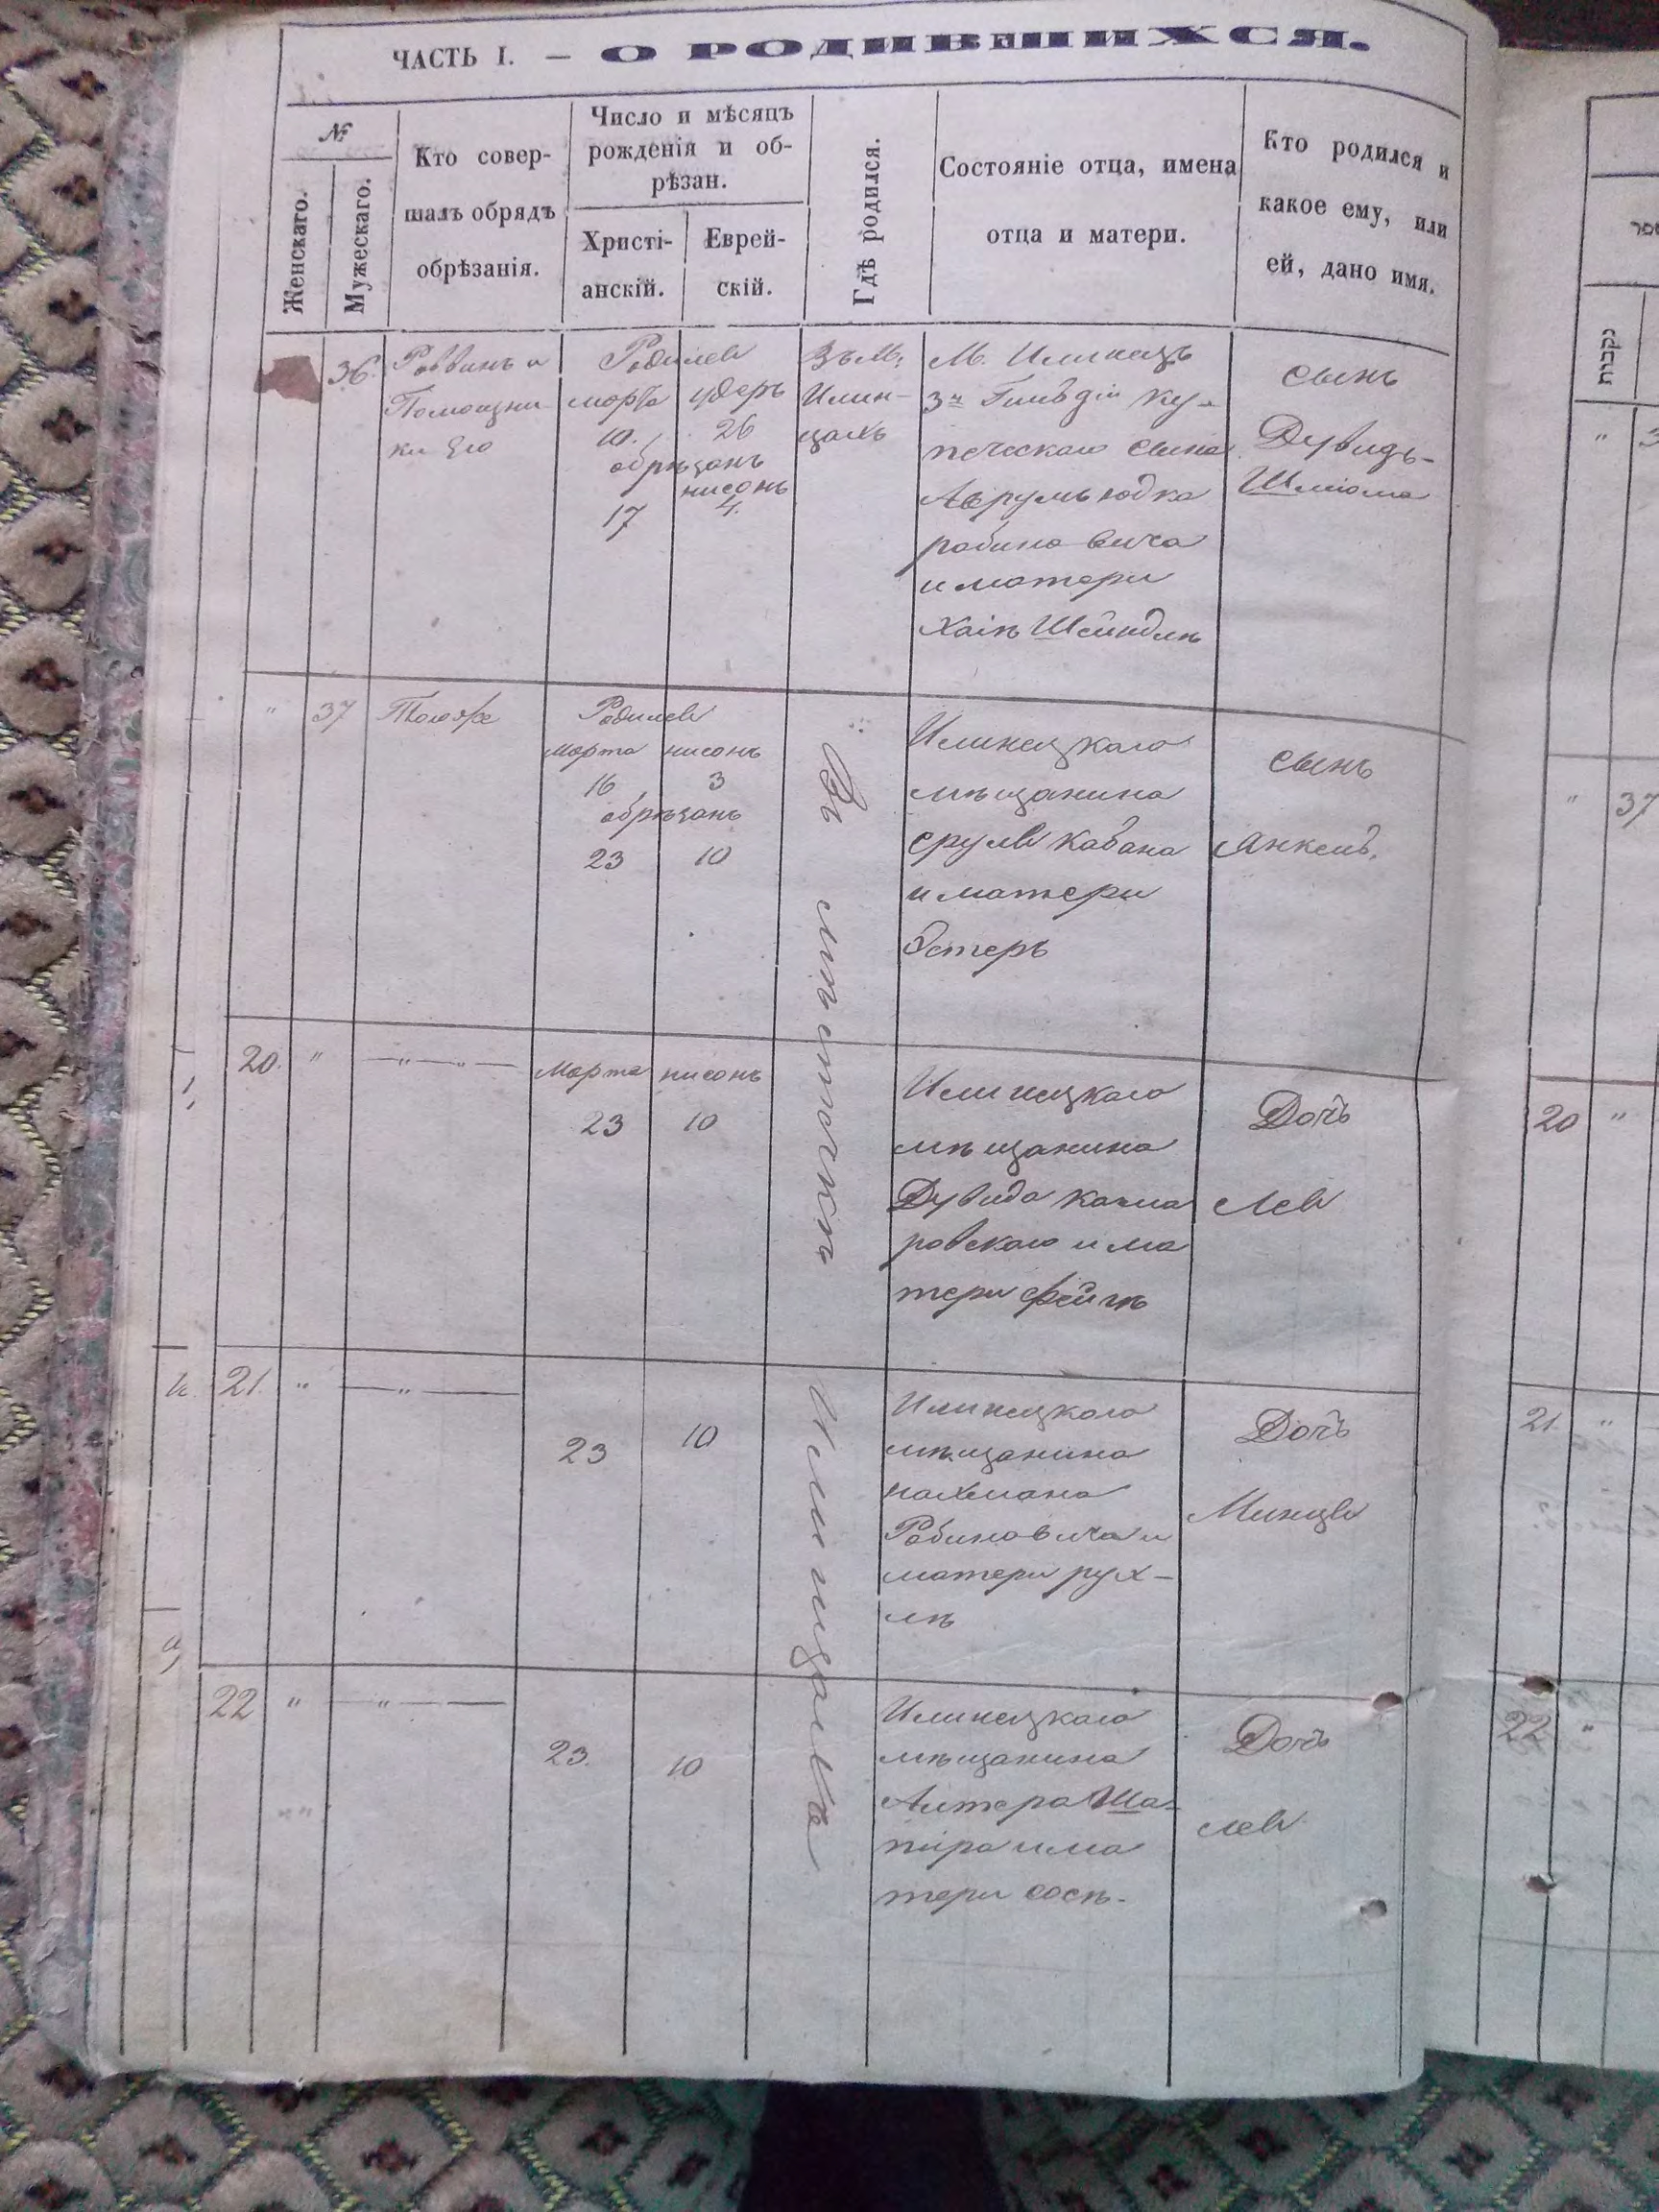 ЧАСТЬ I. — О РОДИВШИХСЯ.
№
Женскаго.
Мужескаго.
Кто совер-
шалъ обрядъ
обрѣзанія.
Число и мѣсяцъ
рожденія и об-
рѣзан.
Христі-
анскій.
Еврей-
скій.
Гдѣ родился.
Состояніе отца, имена
отца и матери.
Кто родился и
какое ему, или
ей, дано имя.
36.
Раввинъ и
Помощни-
ки Его
Родился
марта
10.
адеръ
26
обрѣзанъ
нисонъ
17
4.
Въ М:
Илин-
цахъ
М. Илинецъ
3й Гильдіи ку-
печескаго сына
Аврумъ Юдка
рабиновича
и матери
Хаіѣ Шейндлѣ
сынъ
Дувидъ-
Шліома
" 37
Тогоже
Родился
марта нисонъ
16 3
обрѣзанъ
23 10
Въ мѣстечкѣ Илинцахъ
Илинецкаго
мѣщанина
сруля кабана
и матери
Эстеръ
сынъ
Янкель.
20. "
— " — " —
Марта нисонъ
23 10
Илинецкаго
мѣщанина
Дувида качма
ровскаго и ма
тери фейгѣ
Дочь
Лея
21. "
— " —
23 10
Илинецкаго
мѣщанина
нахмана
Рабиновича и
матери рух-
лѣ
Дочь
Минця
22 "
— " —
23. 10
Илинецкаго
мѣщанина
Алтера Ша-
піра и ма
тери сосѣ.
Дочь
лея
" 37
20 "
21. "
22 "